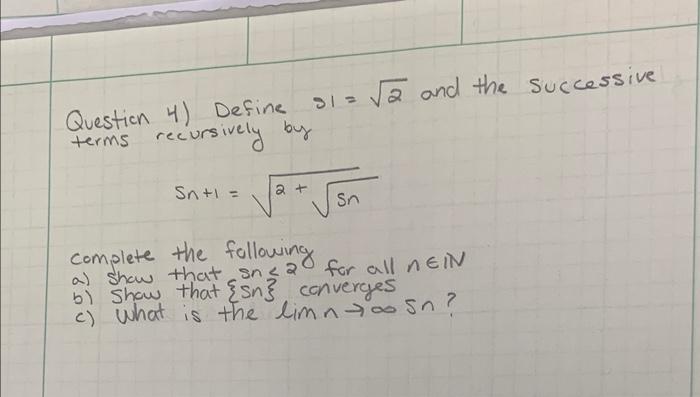 Question 4) Define s1 = √2 and the successive
terms recursively by
Sn+1 = √(2 + √Sn)
complete the following
a) Show that sn < 2 for all n ∈ ℕ
b) Show that {Sn} converges
c) What is the lim n → ∞ Sn?